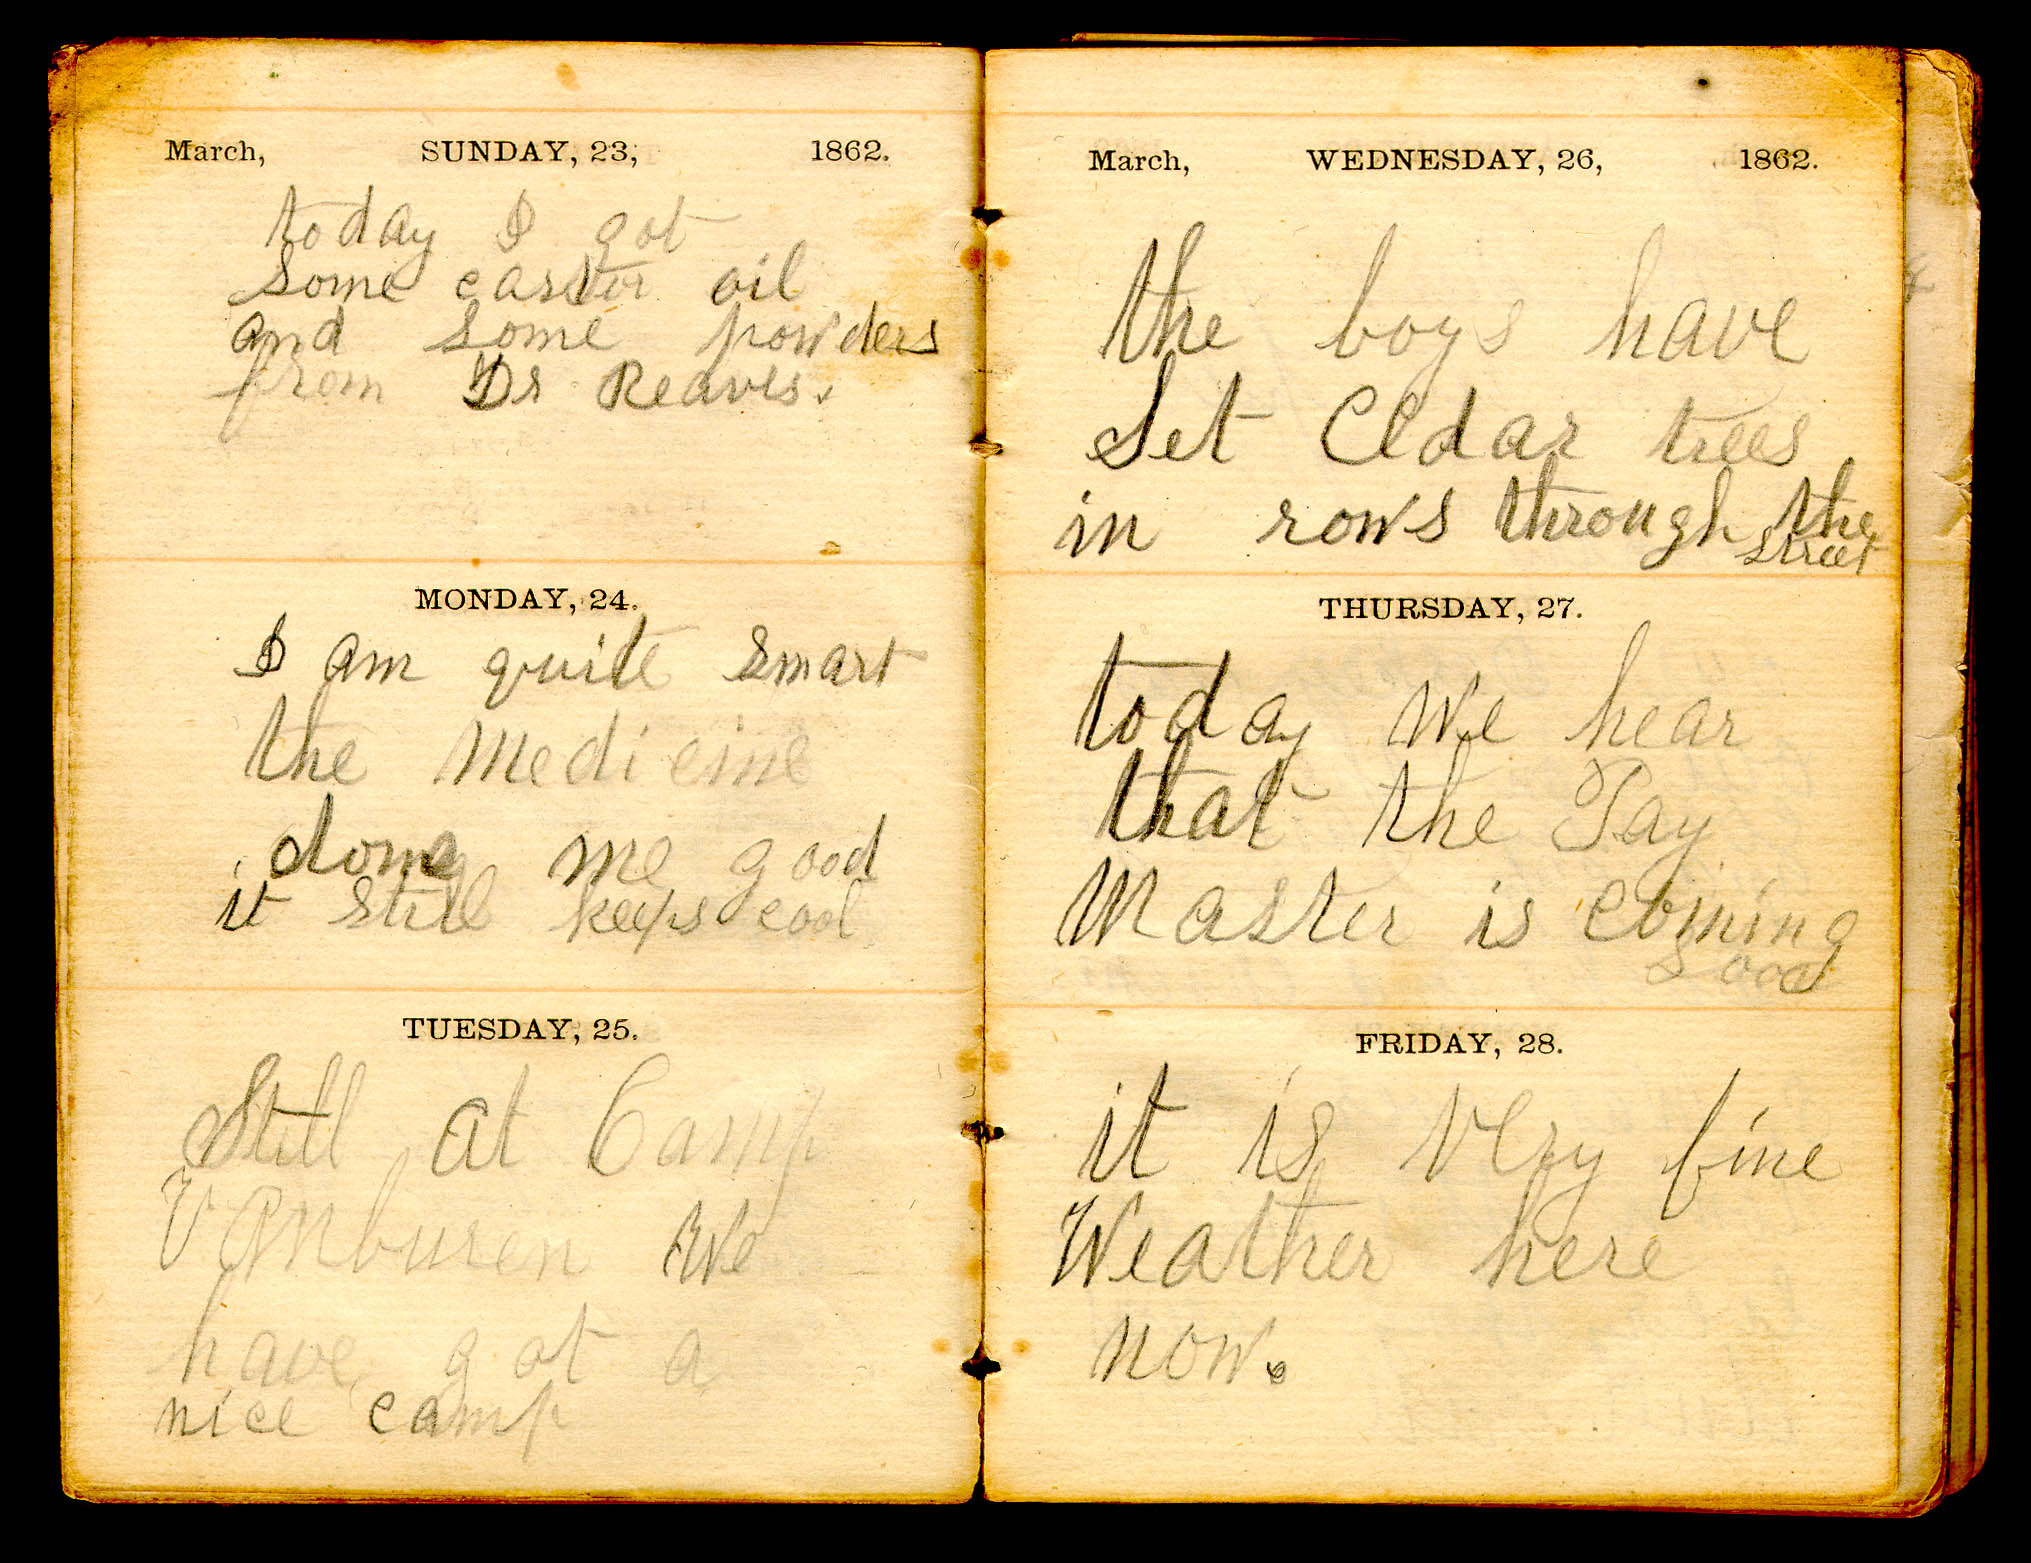 March, SUNDAY, 23, 1862.
today I got
some castor oil
and some powders
from Dr Reaves.
MONDAY, 24.
I am quite smart
the Medicine
done me good
it still keeps cool
TUESDAY, 25.
Still at Camp
Vanburen We
have got a
nice camp
March, WEDNESDAY, 26, 1862.
the boys have
Set Cedar trees
in rows through the
street
THURSDAY, 27.
today We hear
that the Pay
Master is Coming
FRIDAY, 28.
it is Very fine
Weather here
now.